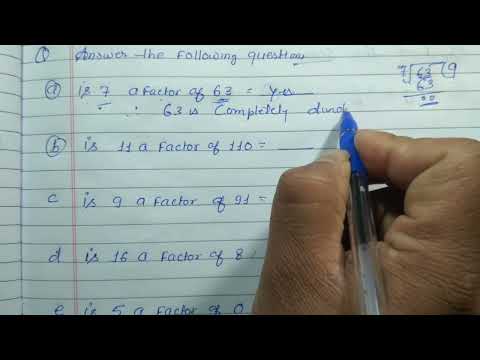 Q Answer the following question
7 63 9
63
00
(a) is 7 a factor of 63 = yes
∴ 63 is Completely
(b) is 11 a factor of 110 =
c is 9 a factor of 91 =
d is 16 a factor of 8
e is 5 a factor of 0